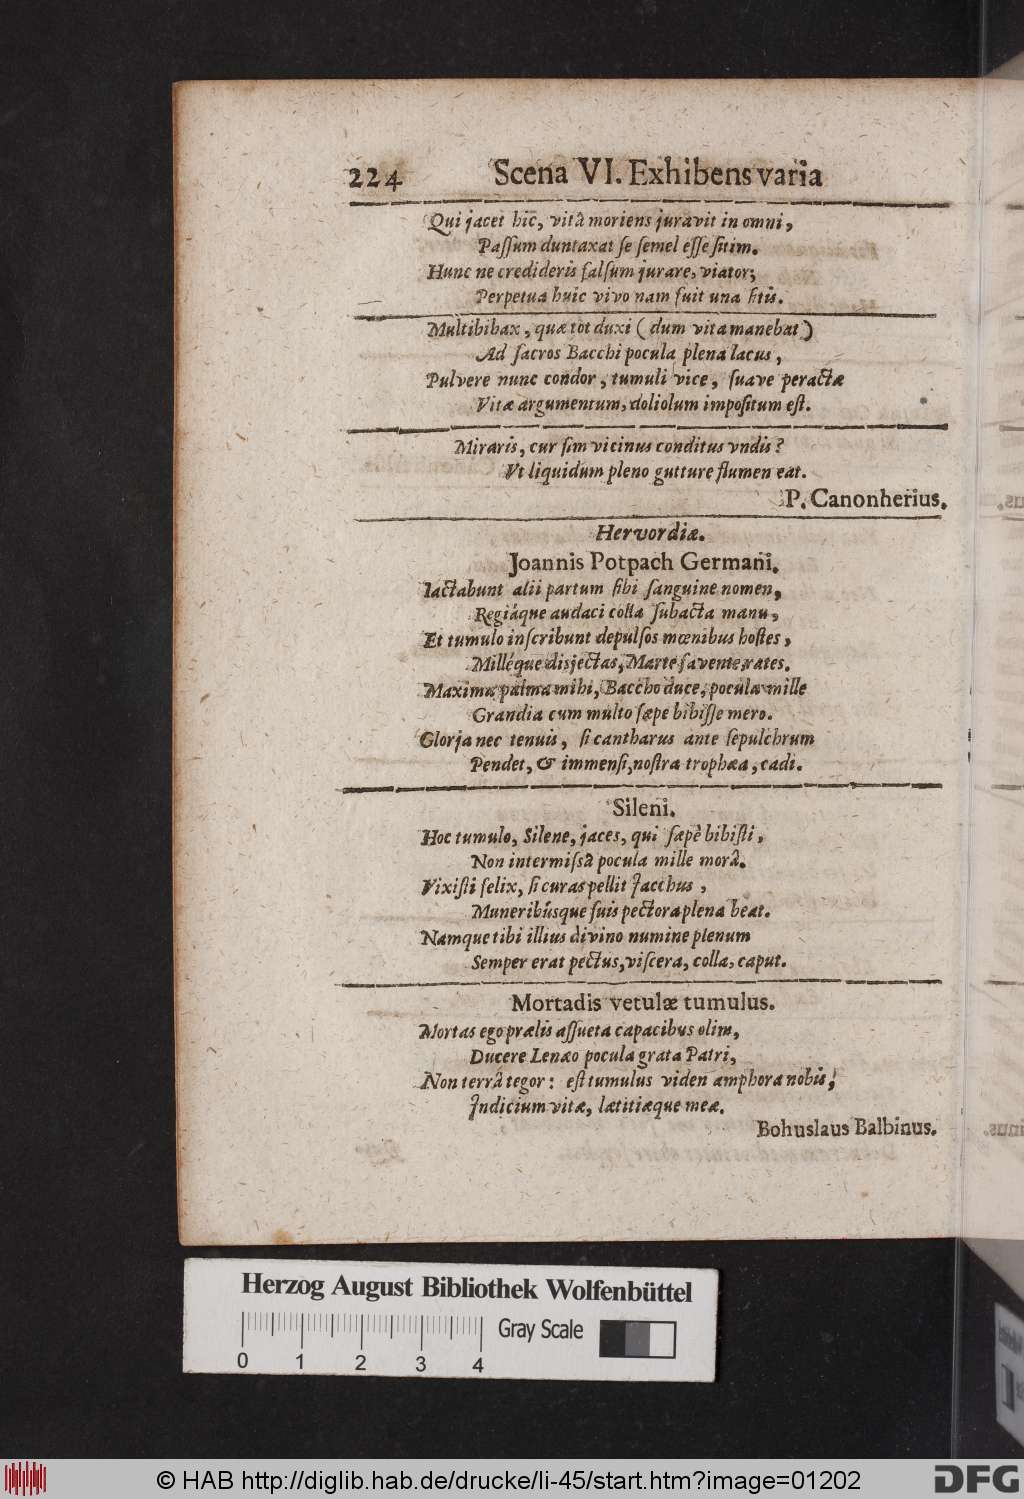 224 Scena VI. Exhibens varia
Qui jacet hîc, vitâ moriens juravit in omni,
Paſſum duntaxat ſe ſemel eſſe ſitim.
Hunc ne credideris falſum jurare, viator;
Perpetua huic vivo nam fuit una ſitis.
Multibibax, quæ tot duxi (dum vita manebat)
Ad ſacros Bacchi pocula plena lacus,
Pulvere nunc condor, tumuli vice, ſuave peractæ
Vitæ argumentum, doliolum impoſitum eſt.
Miraris, cur ſim vicinus conditus vndis?
Vt liquidum pleno gutture flumen eat.
P. Canonherius.
Hervordiæ.
Joannis Potpach Germani.
Iactabunt alii partum ſibi ſanguine nomen,
Regiáque audaci colla ſubacta manu,
Et tumulo inſcribunt depulſos mœnibus hoſtes,
Milléque disjectas, Marte favente, rates.
Maxima palma mihi, Baccho duce, pocula mille
Grandia cum multo ſæpe bibiſſe mero.
Gloria nec tenuis, ſi cantharus ante ſepulchrum
Pendet, & immenſi, noſtra trophæa, cadi.
Sileni.
Hoc tumulo, Silene, jaces, qui ſæpè bibiſti,
Non intermiſsâ pocula mille morâ.
Vixiſti felix, ſi curas pellit Jacchus,
Muneribúsque ſuis pectora plena beat.
Namque tibi illius divino numine plenum
Semper erat pectus, viſcera, colla, caput.
Mortadis vetulæ tumulus.
Mortas ego prælis aſſueta capacibus olim,
Ducere Lenæo pocula grata Patri,
Non terrâ tegor: eſt tumulus viden amphora nobis!
Indicium vitæ, lætitiæque meæ.
Bohuslaus Balbinus.
Herzog August Bibliothek Wolfenbüttel
0 1 2 3 4 Gray Scale
© HAB http://diglib.hab.de/drucke/li-45/start.htm?image=01202
DFG